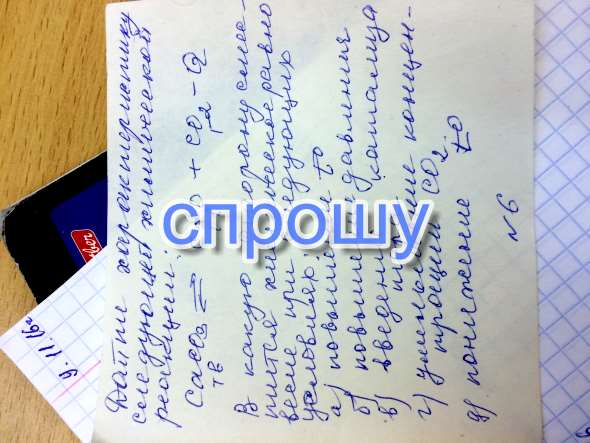 Дайти характеристику
следующей химической
реакции:
CaCO3 ⇄ O + CO2 - Q
тв г
В какую сторону сме-
тится химическое равно
весие при следующих
условиях:
а) повышении to
б) повыше давления
в) введении катализа
г) уменьшение концен-
трации CO2
д) понижение to
№6
спрошу
9.11.16г